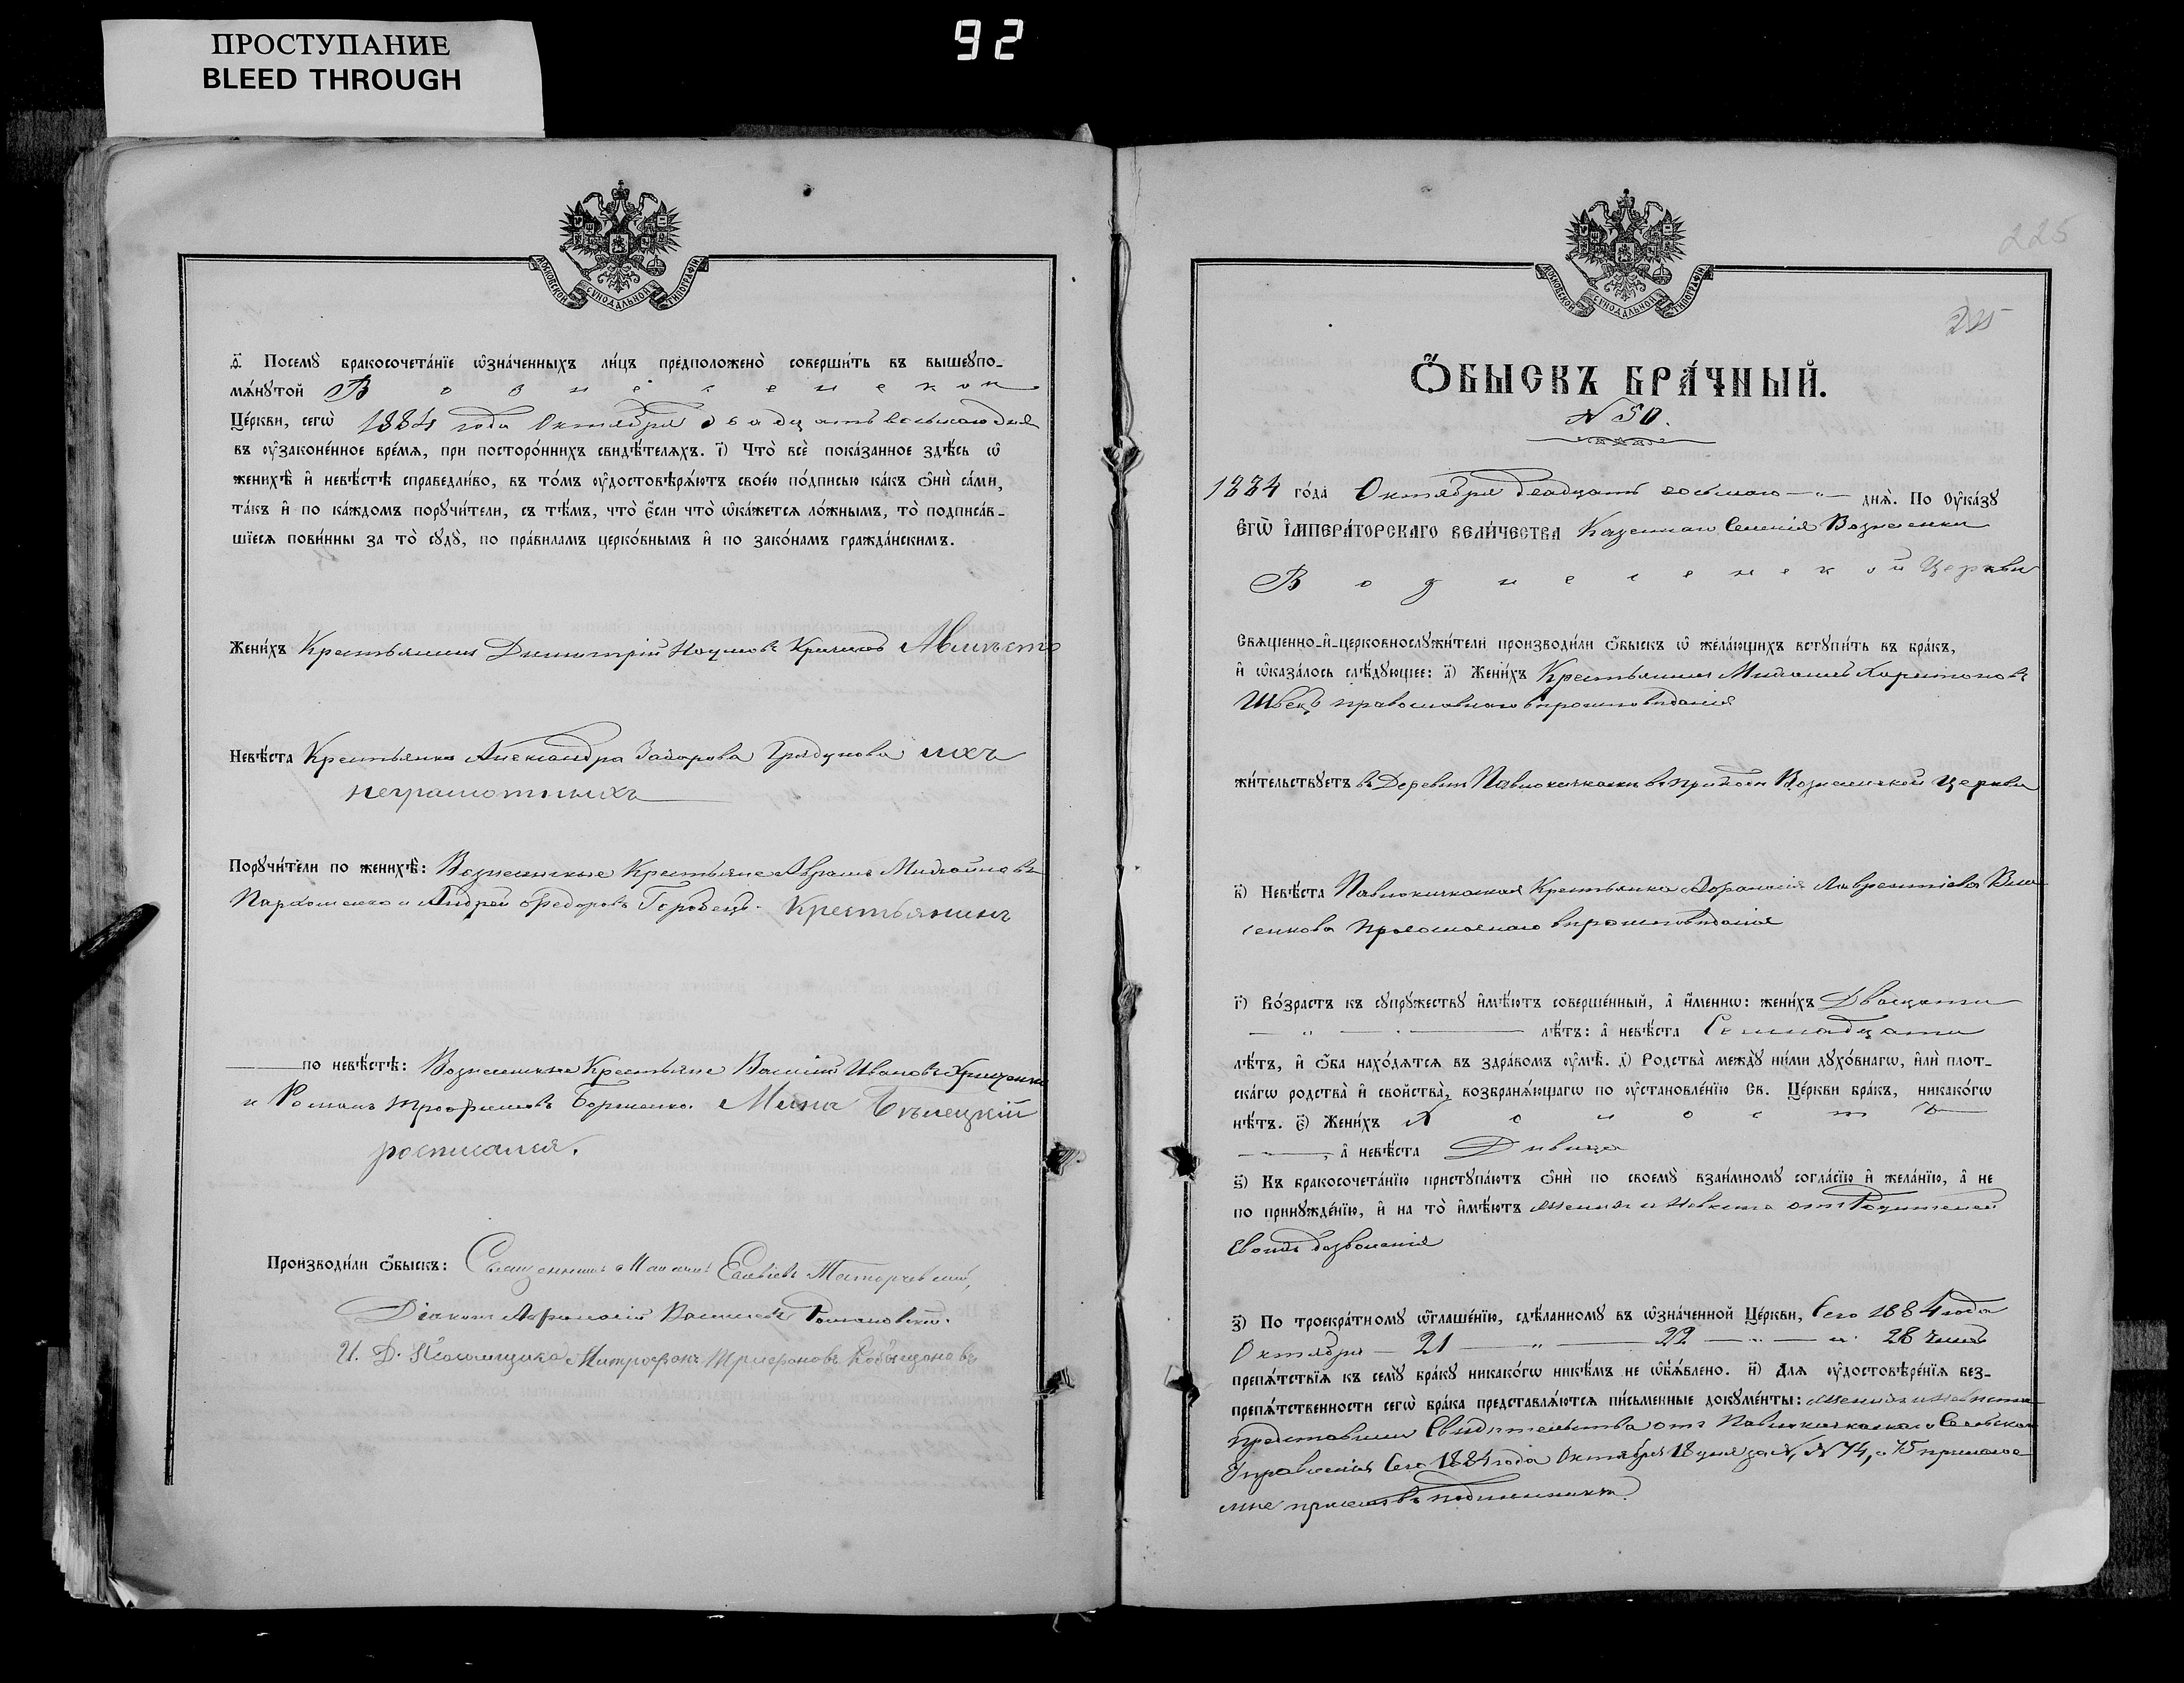 ПРОСТУПАНИЕ
BLEED THROUGH
92
МОСКОВСКОЙ СѴНОДАЛЬНОЙ ТИПОГРАФІИ
д҃. Посемꙋ̀ бракосочета́нїе ѡ҆зна́ченныхъ ли́цъ предположено̀ соверши́ть въ вышеꙋпо-
мѧ́нꙋтой Вознесенской
Це́ркви, сегѡ̀ 1884 года Октября двадцать восьмаго дня
въ ᲂу҆законе́нное вре́мѧ, при посторо́ннихъ свидѣ́телѧхъ. і҃) Что̀ всѐ пока́занное здѣ́сь ѡ҆
женихѣ̀ и҆ невѣ́стѣ справедли́во, въ то́мъ ᲂу҆достовѣрѧ́ютъ свое́ю по́дписью ка́къ ѻ҆нѝ са́ми,
та́къ и҆ по ка́ждомъ порꙋчи́тели, съ тѣ́мъ, что̀ є҆́сли что̀ ѡ҆ка́жетсѧ ло́жнымъ, то̀ подписа́в-
шїесѧ пови́нны за то̀ сꙋдꙋ̀, по пра́виламъ церко́внымъ и҆ по зако́намъ гражда́нскимъ.
Жени́хъ Крестьянинъ Димитрій Наумовъ Авмѣсто
Невѣ́ста Крестьянка Александра Грядунова ихъ
неграмотныхъ
Порꙋчи́тели по женихѣ̀: Вознесенские Крестьяне Аврамъ Михайловъ
Пархоменко и Андрей Федоровъ Горовецъ. Крестьянинъ
по невѣ́стѣ: Вознесенские Крестьяне Василій Ивановъ Хрищенко
и Романъ Трофимовъ Борженко. Мина Бѣлецкій
росписался.
Производи́ли ѻ҆́быскъ: Священникъ Евлѣевъ
Діаконъ Афанасій Васильевъ Романовскій.
И. Д. Псаломщика Митрофанъ Трифоновъ
225
225
МОСКОВСКОЙ СѴНОДАЛЬНОЙ ТИПОГРАФІИ
Ѻ҆БЫСКЪ БРА́ЧНЫЙ.
N 50.
1884 го́да Октября двадцать восьмаго днѧ̀. По Оу҆ка́зꙋ
Є҆ГѠ̀ И҆МПЕРА́ТОРСКАГО ВЕЛИ́ЧЕСТВА Казеннаго Селенія Вознесенки
Вознесенской Церкви
Свѧщенно-и҆-церковнослꙋжи́тели производи́ли ѻ҆́быскъ ѡ҆ жела́ющихъ встꙋпи́ть въ бра́къ,
и҆ ѡ҆каза́лось слѣ́дꙋющее: а҃) Жени́хъ Крестьянинъ Михаилъ Харитоновъ
Швецъ православнаго вѣроисповѣданія
жи́тельствꙋетъ въ Деревни Павлокичкасѣ въ приходѣ Вознесенской Церкви
в҃) Невѣ́ста Павлокичкаская Крестьянка Афанасія Лаврентіева Вла
сенкова Православнаго вѣроисповѣданія
г҃) Во́зрастъ къ сꙋпрꙋжествꙋ и҆мѣ́ютъ соверше́нный, а҆ и҆́менно: жени́хъ Двадцати
лѣ́тъ: а҆ невѣ́ста Семнадцати
лѣ́тъ, и҆ ѻ҆́ба нахо́дѧтсѧ въ здра́вомъ ᲂу҆мѣ̀. д҃) Родства̀ междꙋ̀ ни́ми дꙋхо́внагѡ, и҆лѝ плот-
ска́гѡ родства̀ и҆ свойства̀, возбранѧ́ющагѡ по ᲂу҆становле́нїю Св. Це́ркви бра́къ, никако́гѡ
нѣ́тъ. є҃) Жени́хъ Холостъ
, а҆ невѣ́ста Дѣвица
ѕ҃) Къ бракосочета́нїю пристꙋпа́ютъ ѻ҆нѝ по своемꙋ̀ взаи́мномꙋ согла́сїю и҆ жела́нїю, а҆ не
по принꙋжде́нїю, и҆ на то̀ и҆мѣ́ютъ женихъ и невѣста отъ Родителей
своихъ дозволенія
з҃) По троекра́тномꙋ ѡ҆глаше́нїю, сдѣ́ланномꙋ въ ѡ҆зна́ченной Це́ркви, сего 1884 года
Октября 21 22 и 28 чиселъ
препѧ́тствїѧ къ семꙋ̀ бра́кꙋ никако́гѡ никѣ́мъ не ѡ҆бъѧ́влено. и҃) Для ᲂу҆достовѣре́нїѧ без-
препѧ́тственности сегѡ̀ бра́ка представлѧ́ютсѧ пи́сьменные докꙋме́нты: женихъ и невѣста
представили Свидѣтельства отъ Павлокичкаскаго Сельскаго
Управленія Сего 1884 года Октября 18 дня за N, N 74, и 75 прилагае
мые присемъ въ подлинникѣ.